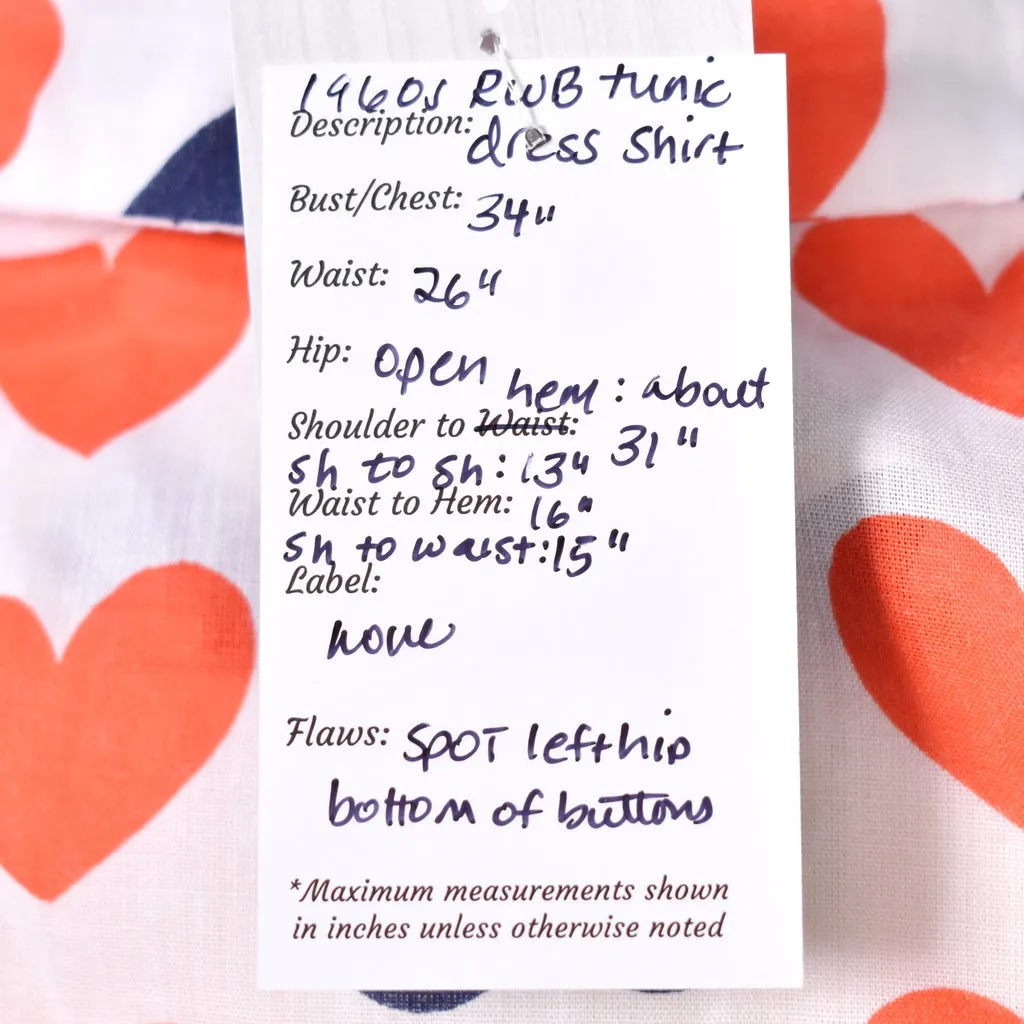 1960s RWB tunic
Description: dress shirt
Bust/Chest: 34"
Waist: 26"
Hip: open
hem: about
Shoulder to Waist: 31"
sh to sh: 13"
Waist to Hem: 16"
sh to waist: 15"
Label:
none
Flaws: SPOT left hip
bottom of buttons
*Maximum measurements shown
in inches unless otherwise noted